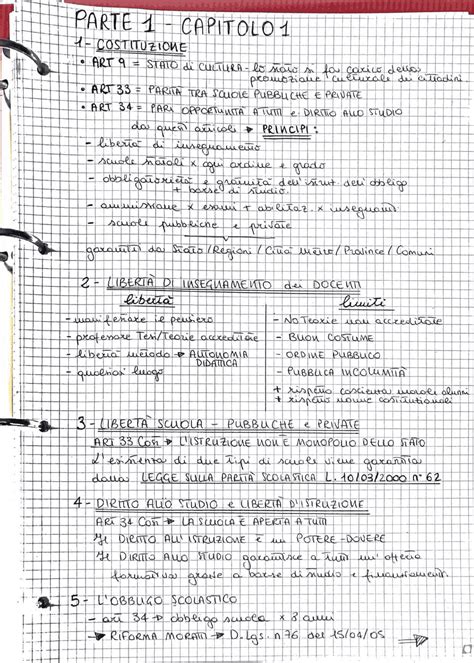 PARTE 1 - CAPITOLO 1
1 - COSTITUZIONE
• ART 9 = STATO di CULTURA - lo stato si fa carico della
promozione culturale dei cittadini
• ART 33 = PARITÀ TRA SCUOLE PUBBLICHE E PRIVATE
• ART 34 = PARI OPPORTUNITÀ A TUTTI e DIRITTO ALLO STUDIO
da questi articoli → PRINCIPI:
- libertà di insegnamento
- scuole statali x ogni ordine e grado
- obbligatorietà e gratuità dell'istruz dell'obbligo
+ borse di studio
- ammissione x esami + abilitaz. x insegnanti
- scuole pubbliche e private
garantiti da Stato / Regioni / Città Metro / Province / Comuni
2 - LIBERTÀ DI INSEGNAMENTO dei DOCENTI
libertà limiti
- manifestare il pensiero - No Teorie non accreditate
- professare Tesi/Teorie accreditate - BUON COSTUME
- libertà metodo → AUTONOMIA DIDATTICA - ORDINE PUBBLICO
- qualsiasi luogo - PUBBLICA INCOLUMITÀ
+ rispetto coscienza morale alunni
+ rispetto norme costituzionali
3 - LIBERTÀ SCUOLA - PUBBLICHE e PRIVATE
ART 33 COST → L'ISTRUZIONE NON È MONOPOLIO DELLO STATO
L'esistenza di due tipi di scuole viene garantita
dalla LEGGE SULLA PARITÀ SCOLASTICA L. 10/03/2000 n° 62
4 - DIRITTO ALLO STUDIO e LIBERTÀ D'ISTRUZIONE
ART 34 COST → LA SCUOLA È APERTA A TUTTI
IL DIRITTO ALL'ISTRUZIONE è un POTERE-DOVERE
IL DIRITTO ALLO STUDIO garantisce a tutti un'offerta
formativa grazie a borse di studio e finanziamenti.
5 - L'OBBLIGO SCOLASTICO
- art 34 → obbligo scuola x 8 anni
→ RIFORMA MORATTI → D.Lgs. n 76 del 15/04/05